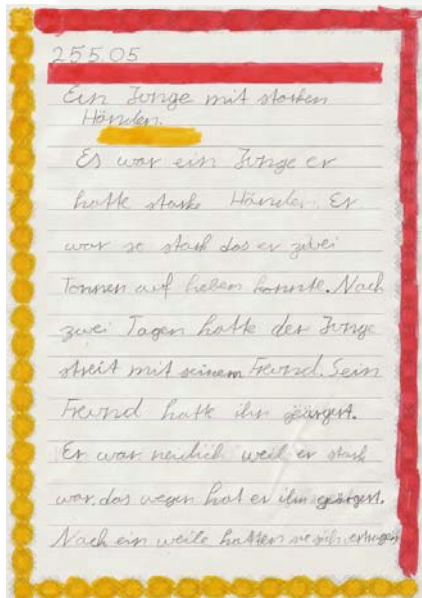 25.5.05
Ein Junge mit starken
Händen.
Es war ein Junge er
hatte starke Händer. Er
war so stark das er zwei
Tonnen auf heben konnte. Nach
zwei Tagen hatte der Junge
streit mit seinem Freund. Sein
Freund hatte ihn geärgert.
Er war neidich weil er stark
war. das wegen hat er ihn geärgert.
Nach ein weile hatten sie sich vertragen